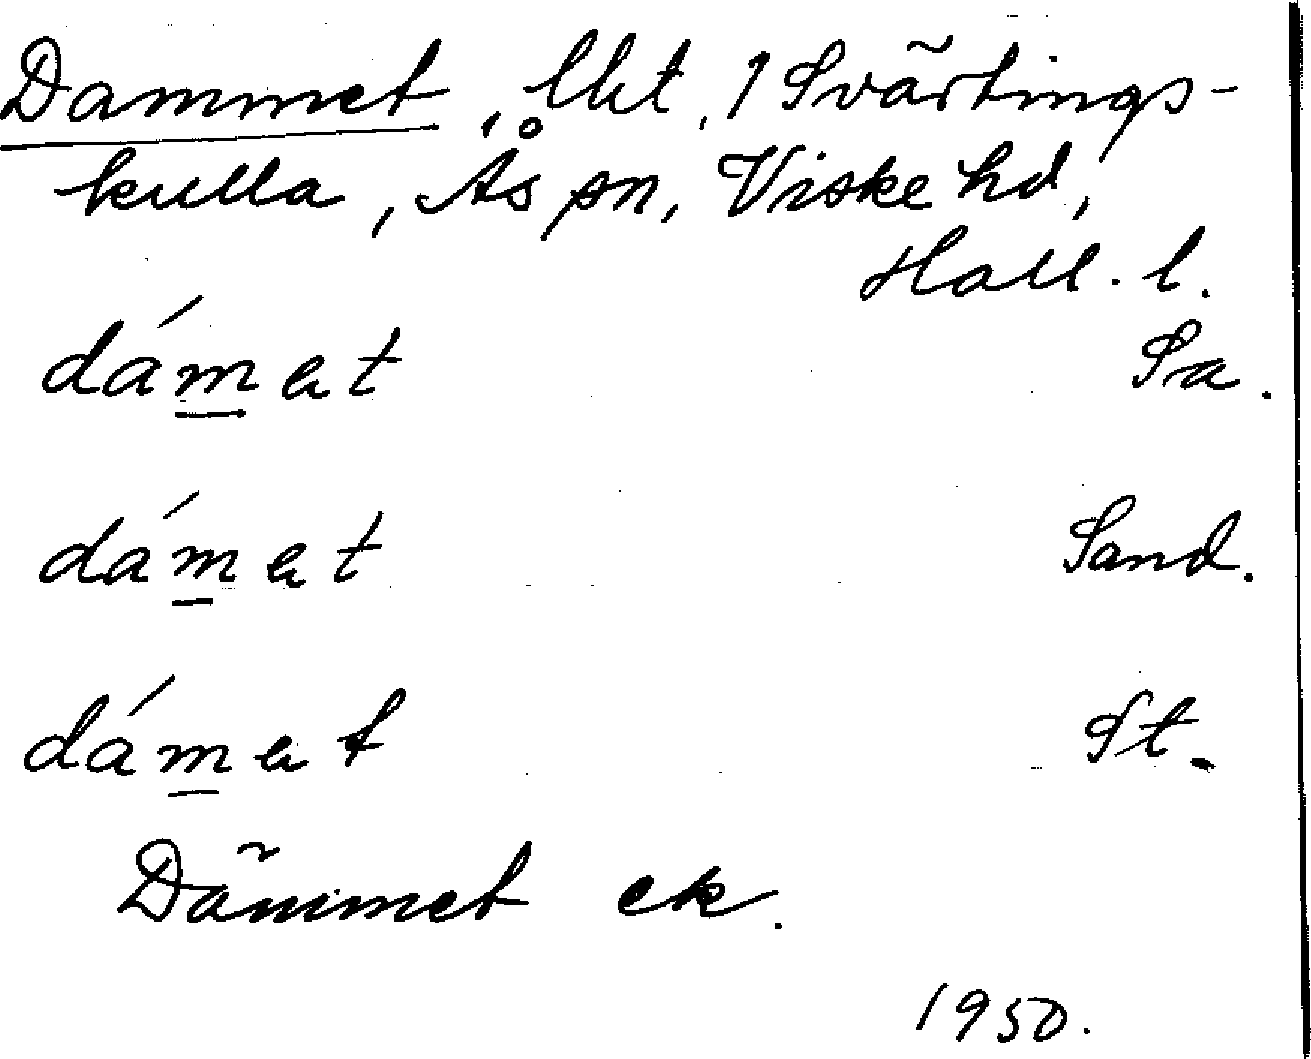 Dammet, lht, 1 Svärtings-
kulla, Ås sn, Viske hd,
Hall. l.
dámat Sa.
dámat Sand.
dámat St.
Dämmet ek.
1950.